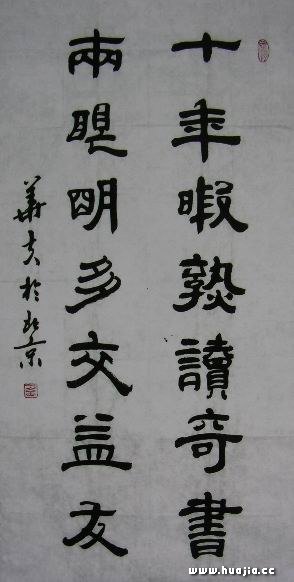 十年暇熟讀奇書
兩眼明多交益友
華夫於北京
www.huajia.cc